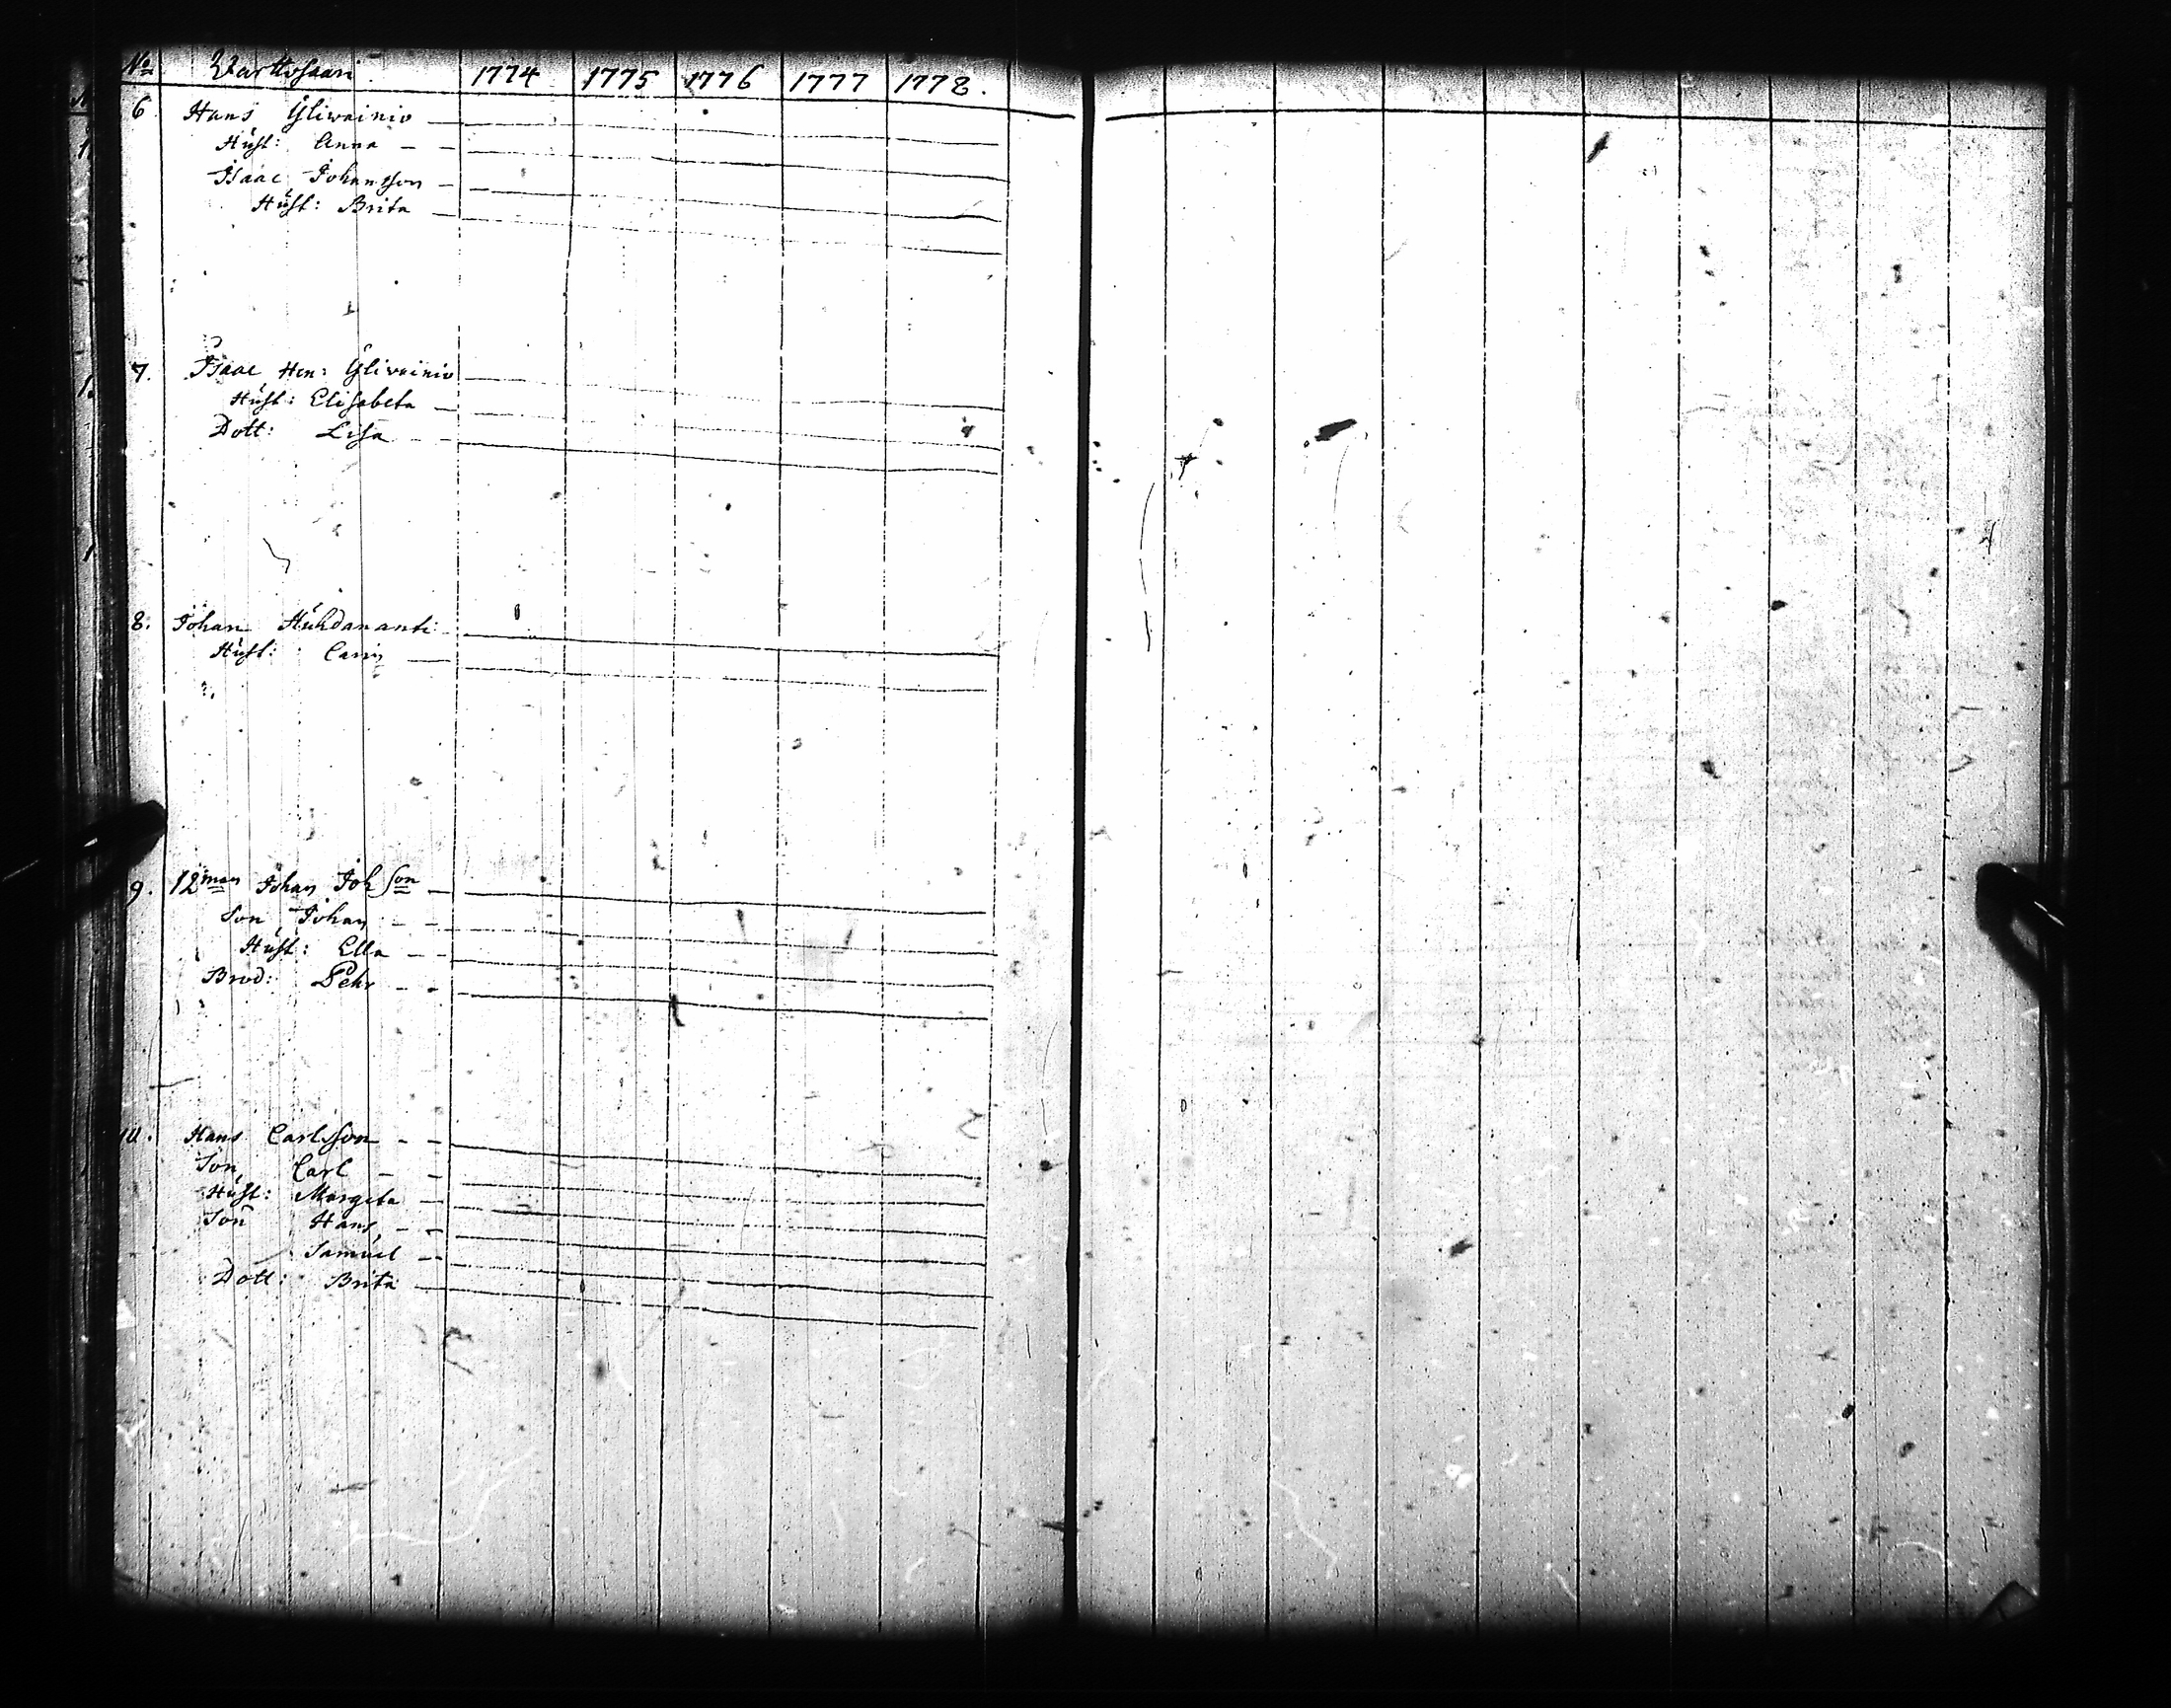 No Varttosaari 1774 1775 1776 1777 1778.
6 Hans Yliwainio
Hust: Anna
Isaac Johansson
Hust: Brita
7. Isaac Hen: Yliwainio
Hust: Elisabeta
Dott: Lisa
8. Johan Huhdananti
Hust: Carin
9. 12man Johan Joh Son
Son Johan
Hust: Ella
Brod: Pehr
10. Hans Carlsson
Son Carl
Hust: Margeta
Son Hans
Samuel
Dott: Brita